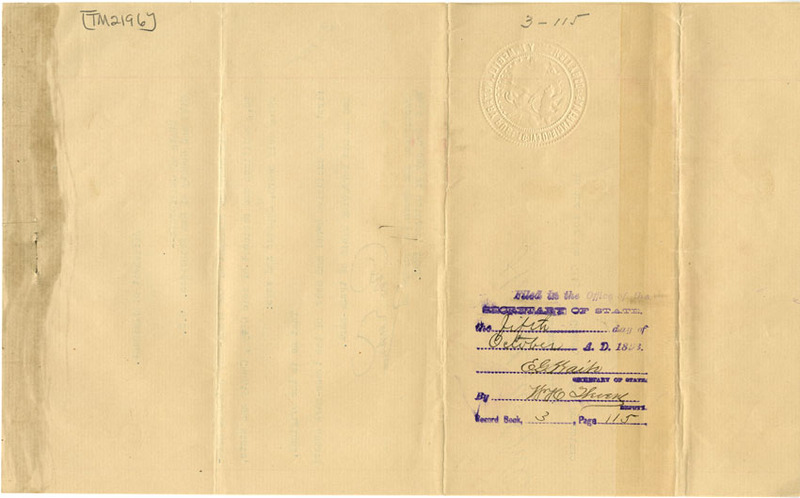 [TM2196]
3-115
Filed in the Office of the
SECRETARY OF STATE,
the fifth day of
October A. D. 189
E G Waite
SECRETARY OF STATE.
By
DEPUTY.
Record Book, 3, Page 115